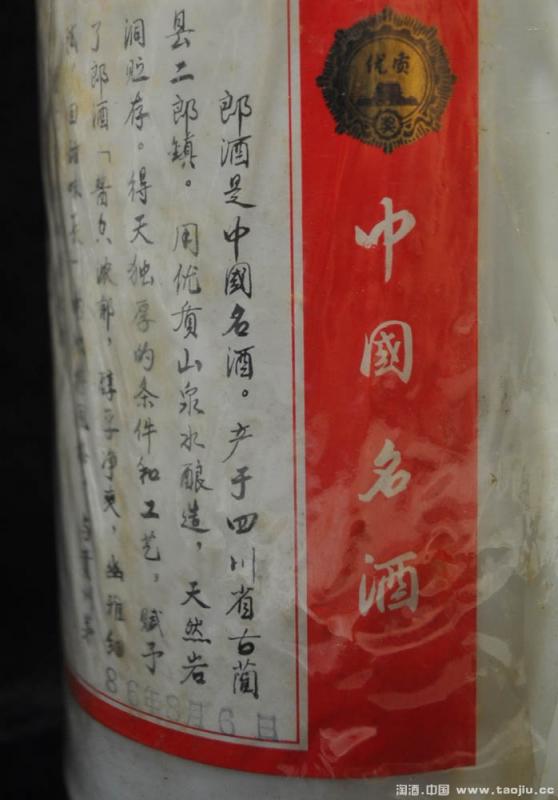 优质
奖
中國名酒
郎酒是中國名酒。产于四川省古蔺
县二郎镇。用优质山泉水酿造，天然岩
洞贮存。得天独厚的条件和工艺，赋予
了郎酒「酱香浓郁，醇厚净爽，幽雅细
回味
86年3月6日
淘酒.中国 www.taojiu.cc